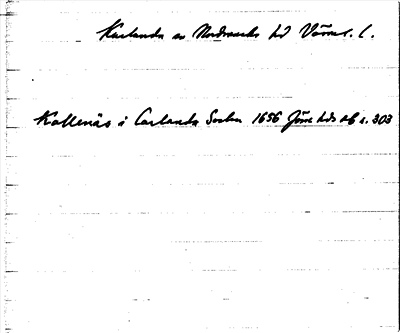 Karlanda sn Nordmarks hd Värml. l.
Kollenäs i Carlanda Sochn 1656 Jösse hds db s. 303